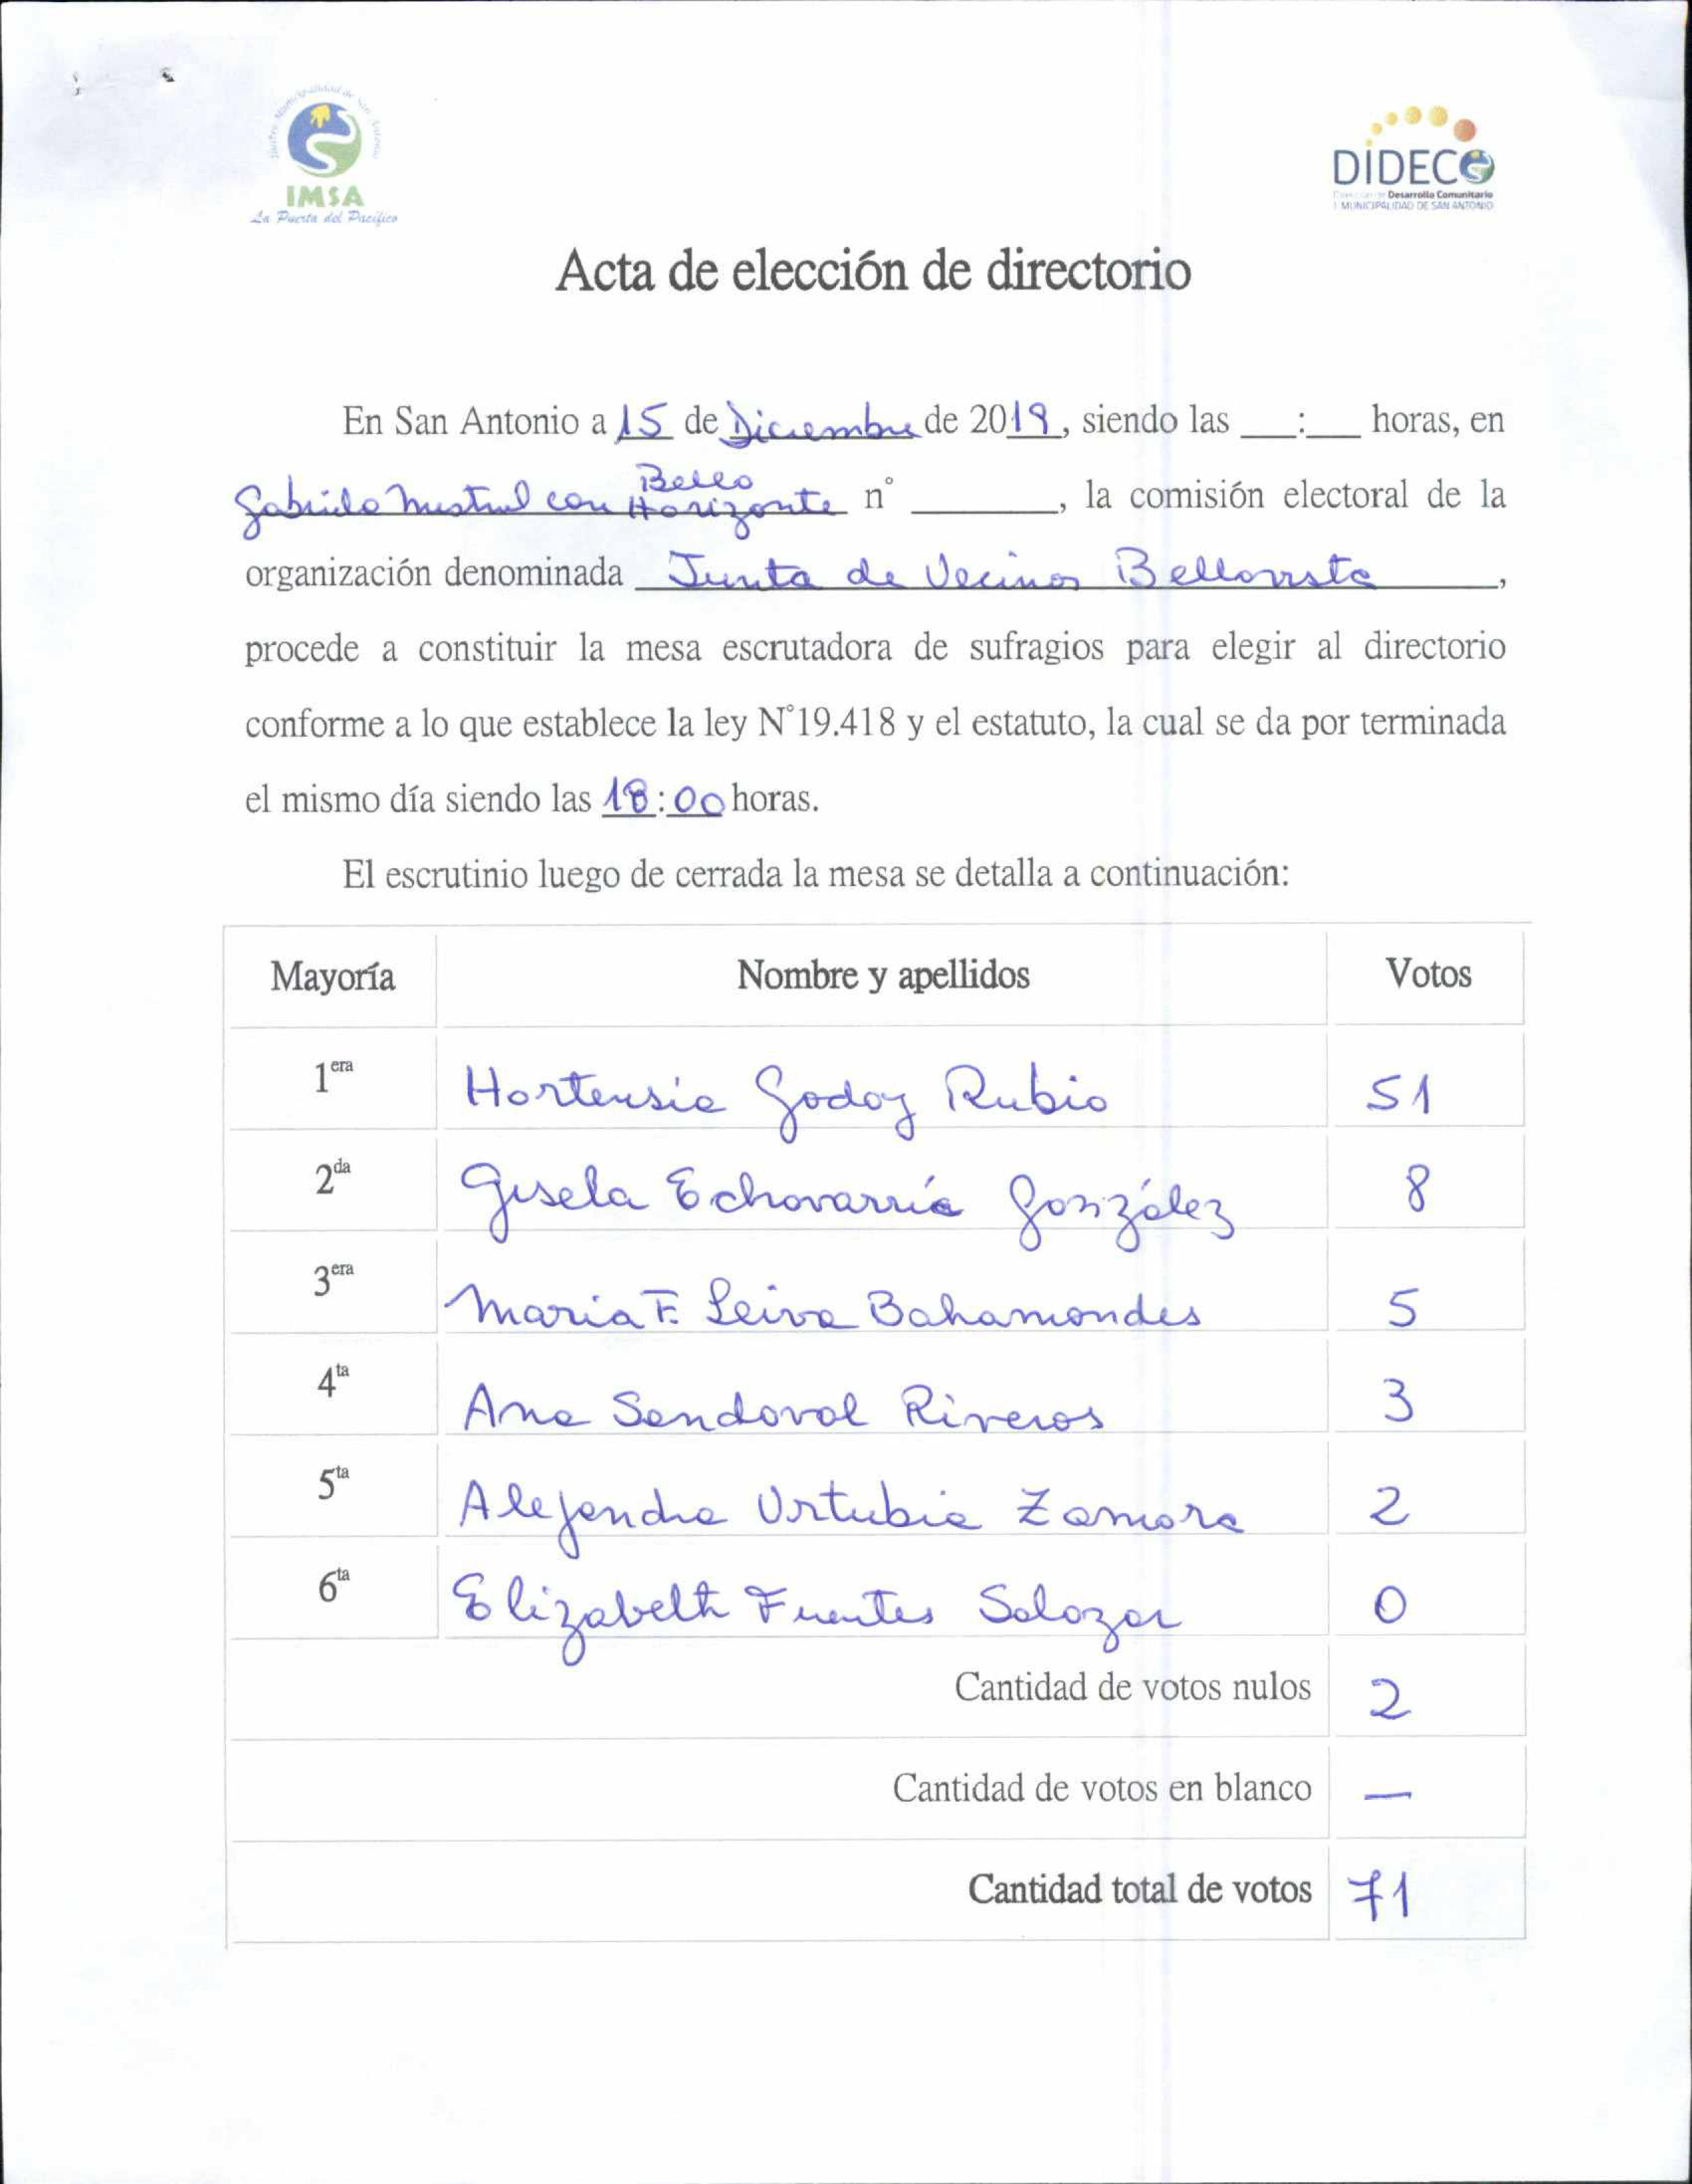 Ilustre Municipalidad de San Antonio
IMSA
La Puerta del Pacífico
DIDECO
Desarrollo Comunitario
I. MUNICIPALIDAD DE SAN ANTONIO
Acta de elección de directorio
En San Antonio a 15 de Diciembre de 2019, siendo las ___:___ horas, en
Gabriela Mistral con Bello Horizonte n° ______, la comisión electoral de la
organización denominada Junta de Vecinos Bellavista,
procede a constituir la mesa escrutadora de sufragios para elegir al directorio
conforme a lo que establece la ley N°19.418 y el estatuto, la cual se da por terminada
el mismo día siendo las 18:00 horas.
El escrutinio luego de cerrada la mesa se detalla a continuación:
Mayoría Nombre y apellidos Votos
1era Hortensia Godoy Rubio 51
2da Gisela Echavarría González 8
3era Maria F. Leiva Bahamondes 5
4ta Ana Sandoval Riveros 3
5ta Alejandra Urtubia Zamora 2
6ta Elizabeth Fuentes Salazar 0
Cantidad de votos nulos 2
Cantidad de votos en blanco —
Cantidad total de votos 71